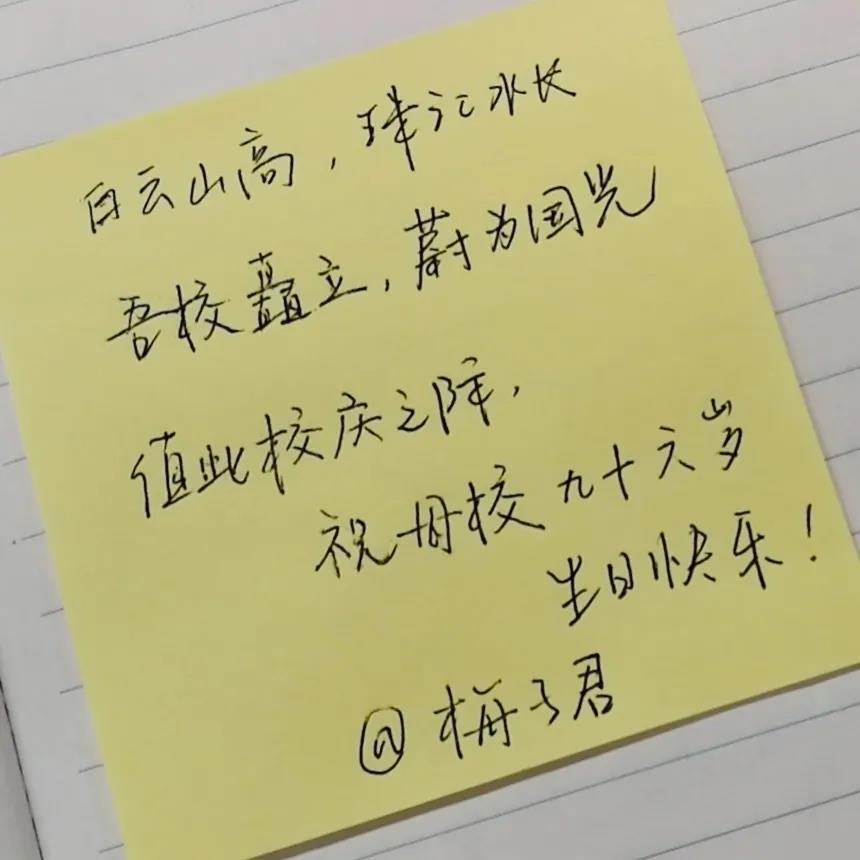 白云山高，珠江水长
吾校矗立，蔚为国光
值此校庆之际，
祝母校九十六岁
生日快乐！
@梅子君